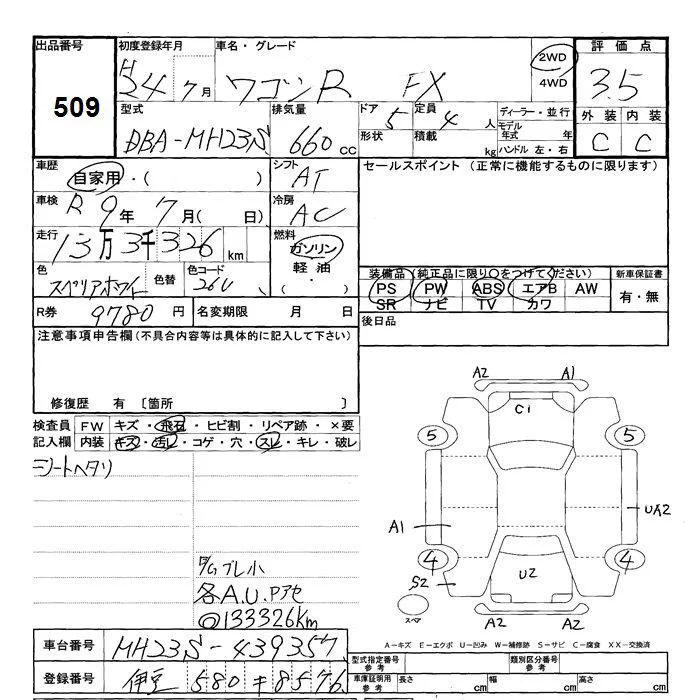 出品番号 初度登録年月 車名・グレード 2WD 評価点
509 H24 7月 ワゴンR FX 4WD 3.5
型式 排気量 ドア 定員 ディーラー・並行 外装 内装
DBA-MH23S 660cc 5 4人 モデル年式 年 C C
形状 積載 kg ハンドル 左・右
車歴 自家用・( ) シフト AT セールスポイント (正常に機能するものに限ります)
車検 R9年 7月( 日) 冷房 AC
走行 13万3千326km 燃料 ガソリン
軽油・( )
色 スペリアホワイト 色替 色コード 26U
装備品(純正品に限り○をつけてください) 新車保証書
PS PW ABS エアB AW 有・無
SR ナビ TV カワ
R券 9780円 名変期限 月 日 後日品
注意事項申告欄(不具合内容等は具体的に記入して下さい)
修復歴 有 〔箇所 〕
検査員 FW キズ・飛石・ヒビ割・リペア跡・×要
記入欄 内装 キズ・汚レ・コゲ・穴・スレ・キレ・破レ
シートヘタリ
ブレ小
各A.U.Pアセ
◎133326km
A2 A1
C1
5 5
A1 UA2
4 4
S2 U2
スペア A2 A2
A-キズ E-エクボ U-凹み W-補修跡 S-サビ C-腐食 XX-交換済
車台番号 MH23S-439357
登録番号 伊豆 580 キ 8576
型式指定番号 参考 類別区分番号 参考
車庫証明用 参考 長さ cm 幅 cm 高さ cm